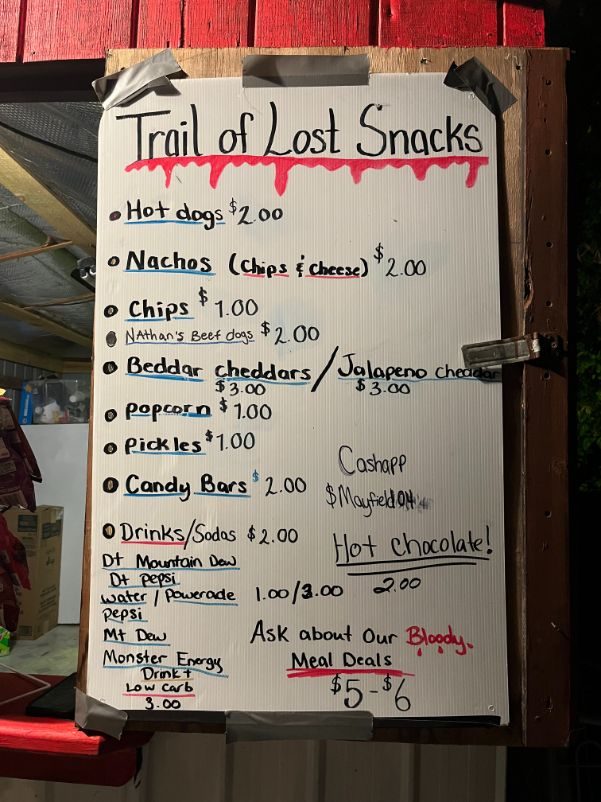 Trail of Lost Snacks
Hot dogs $2.00
Nachos (chips & cheese) $2.00
Chips $1.00
NAthan's Beef dogs $2.00
Beddar cheddars / Jalapeno cheddar
$3.00 $3.00
popcorn $1.00
Pickles $1.00
Candy Bars $2.00
Cashapp
Drinks/Sodas $2.00
Hot Chocolate!
2.00
Dt Mountain Dew
Dt pepsi
water / Powerade 1.00/3.00
pepsi
Mt Dew
Monster Energy
Drink +
Low carb
3.00
Ask about Our Bloody
Meal Deals
$5-$6